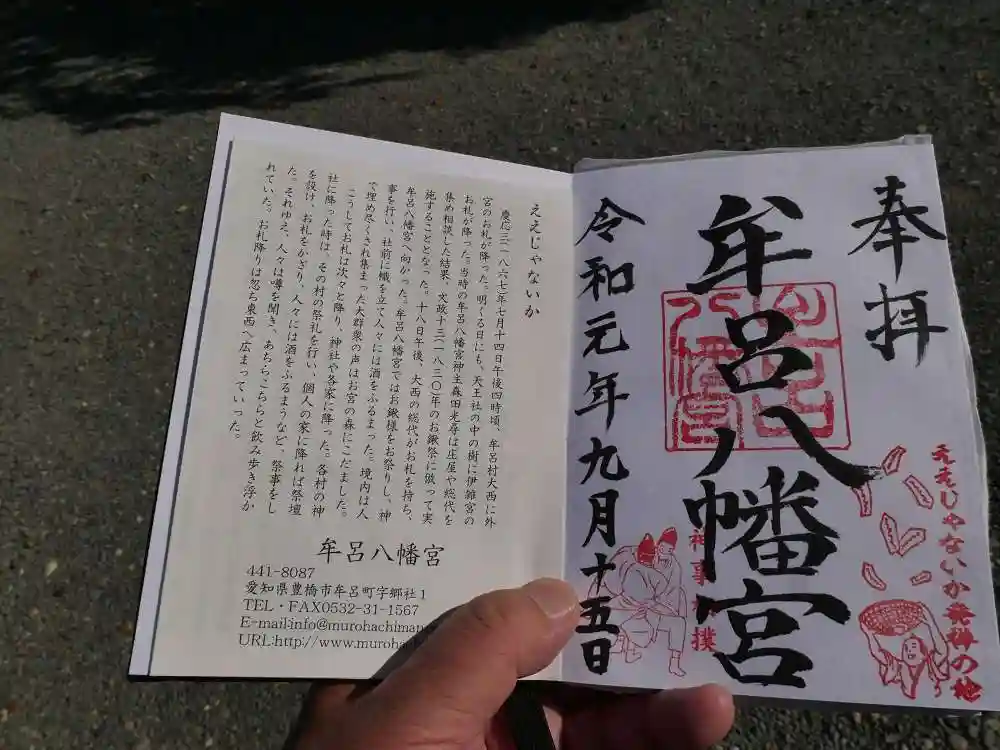 奉拝
牟呂八幡宮
令和元年九月十五日
ええじゃないか発祥の地
神事相撲
ええじゃないか
慶応三(一八六七)年七月十四日午後四時頃、牟呂村大西に外
宮のお札が降った。明くる日にも、天王社の中の樹に伊雑宮の
お札が降った。当時の牟呂八幡宮神主森田光尋は庄屋や総代を
集め相談した結果、文政十三(一八三〇)年のお鍬祭に倣って実
施することとなった。十八日午後、大西の総代がお札を持ち、
牟呂八幡宮へ向かった。牟呂八幡宮ではお鍬様をお祭りし、神
事を行い、社前に幟を立て人々には酒をふるまった。境内は人
で埋め尽くされ集まった大群衆の声はお宮の森にこだました。
こうしてお札は次々と降り、神社や各家に降った。各村の神
社に降った時は、その村の祭礼を行い、個人の家に降れば祭壇
を設け、お札をかざり、人々には酒をふるまうなど、祭事をし
た。それゆえ、人々は噂を聞き、あちらこちらと飲み歩き浮か
れていた。お札降りは忽ち東西へ広まっていった。
牟呂八幡宮
441-8087
愛知県豊橋市牟呂町字郷社1
TEL・FAX0532-31-1567
E-mail:info@murohachiman
URL:http://www.muroha